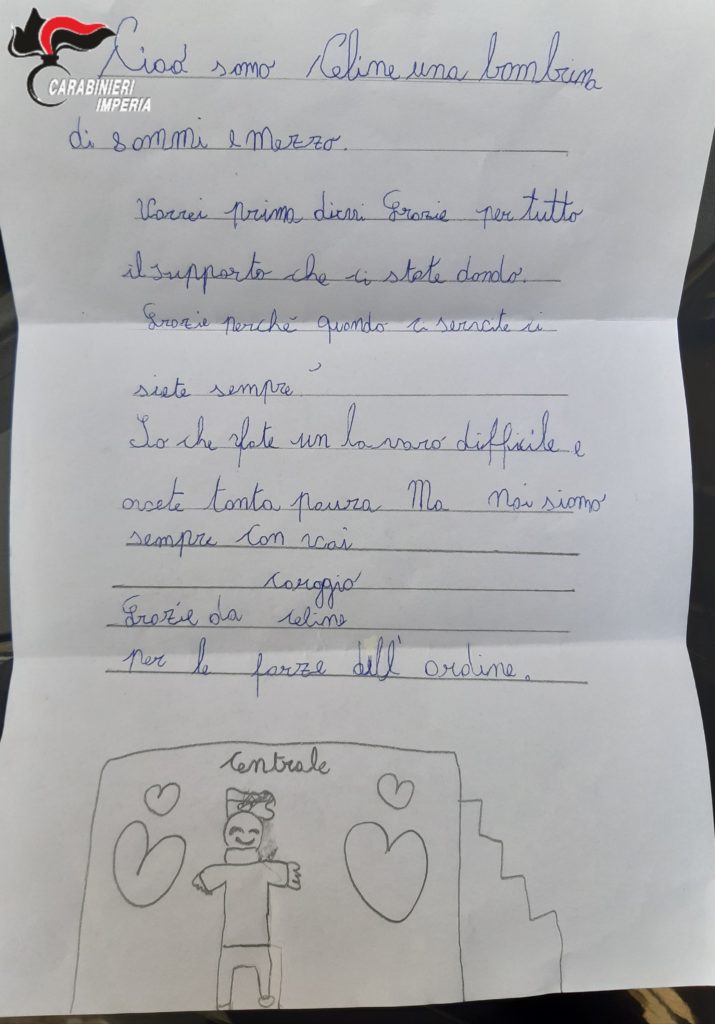 CARABINIERI
IMPERIA
Ciao sono Celine una bambina
di anni e mezzo.
Vorrei prima dirvi Grazie per tutto
il supporto che ci state dando.
Grazie perché quando ci servite ci
siete sempre
So che fate un lavoro difficile e
avete tanta paura Ma Noi siamo
sempre con voi
coraggio
Grazie da Celine
per le forze dell'ordine.
Centrale